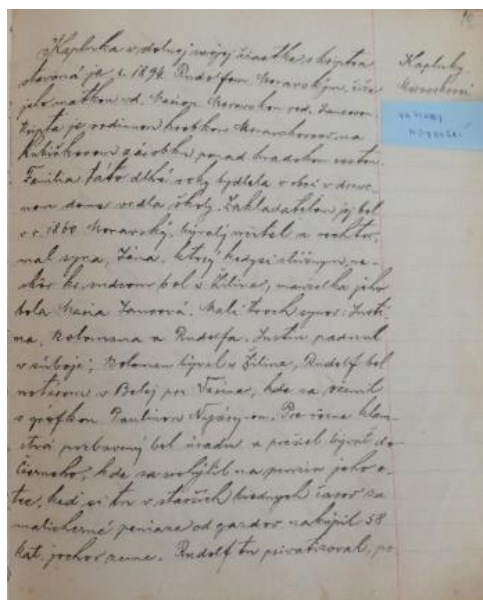 Kaplnka v dolnej svojej čiastke s kryptou
stavaná je r. 1894 Rudolfom Moravským, čiže
jeho matkou vd. Máriou Moravskou rod. Jancsovou.
Krypta je rodinnou hrobkou Moravskovcov na
Kubičkovom zárobku popad hradskou cestou.
Familia táto dlhé roky bydlela v obci v dreve-
nom dome vedla školy. Zakladatelom jej bol
v r. 1860 Moravský, bývalý učitel a rechtor,
mal syna, Jána, ktorý kedysi slúžnym,
bol v Žilina, manželka jeho
bola Maria Jancsová. Mali troch synov: Justi-
na, Kolomana a Rudolfa. Justin padnul
v súboji, Koloman býval v Žiline, Rudolf bol
notárom v Belej pri Varíne, kde sa oženil
s grófkou Paulinou Nyáryovou. Pre rôzne klam-
stvá pozbavený bol úradu a prešiel bývať do
Čierneho, kde sa uchýlil na penziu jeho o-
tec, keď si tu v starších biednych časov za
malicherné peniaze od gazdov nakúpil 58
kat. jochov zeme. Rudolf tu privatizoval, po-
Kaplnky.
Moravskovci
KAPLNKY
MORAVSKÍ